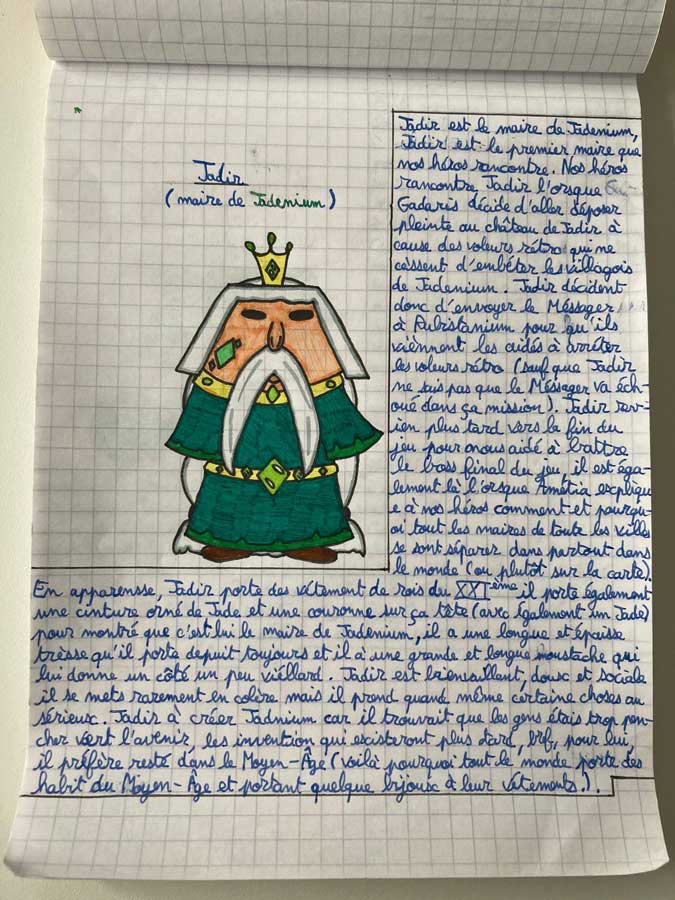 Jadir
(maire de Jadenium)
Jadir est le maire de Jadenium,
Jadir est le premier maire que
nos héros rancontre. Nos héros
rancontre Jadir l'orsque
Gadaris décide d'aller déposer
pleinte au château de Jadir à
cause des voleurs rétro qui ne
cèssent d'embéter les villagois
de Jadenium. Jadir décident
donc d'envoyer le Méssager
à Rubistanium pour qu'ils
viènnent les aidés à arréter
les voleurs rétro (sauf que Jadir
ne sais pas que le Méssager va éch-
oué dans ça mission). Jadir rev-
ien plus tard vers la fin du
jeu pour nous aidé à battre
le boss final du jeu, il est éga-
lement là l'orsque Amétia expliqu
e à nos héros comment et pourqu-
oi tout les maires de toute les villes
se sont séparer dans partout dans
le monde (ou plutôt sur la carte).
En apparensse, Jadir porte des vétement de rois du XXIème il porte également
une cinture orné de Jade et une couronne sur ça tête (avec également un Jade)
pour montré que c'est lui le maire de Jadenium, il a une longue et épaisse
trèsse qu'il porte depuit toujours et il à une grande et longue moustache qui
lui donne un côté un peu viéllard. Jadir est bienveillent, doux et sociale
il se mets rarement en colère mais il prend quand même cértaine choses au
sérieux. Jadir à créer Jadnium car il trouvait que les gens étais trop pen-
cher vert l'avenir, les invention qui excisteront plus tard, brf, pour lui
il préfère resté dans le Moyen-Âge (voilà pourquoi tout le monde porte des
habit du Moyen-Âge et portant quelque bijoux à leur vétements).